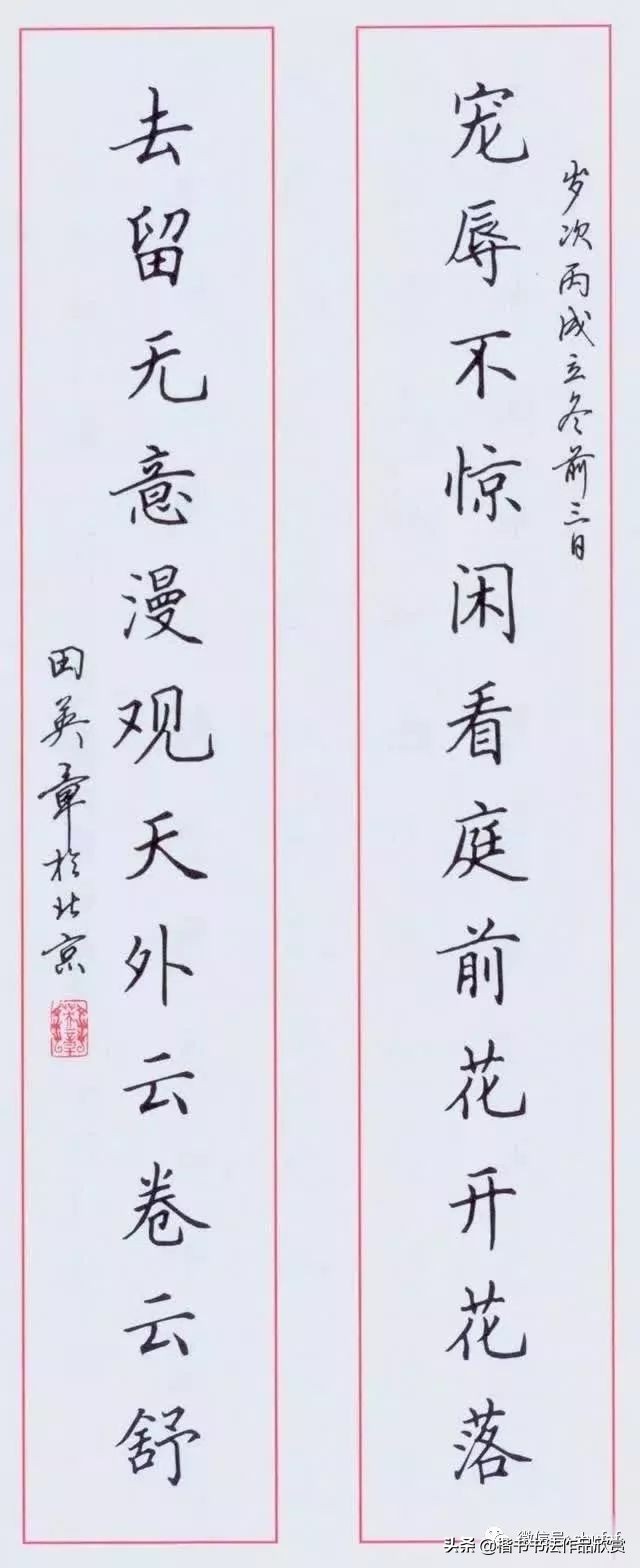 岁次丙戌立冬前三日
宠辱不惊闲看庭前花开花落
去留无意漫观天外云卷云舒
田英章於北京
头条@楷书书法作品欣赏